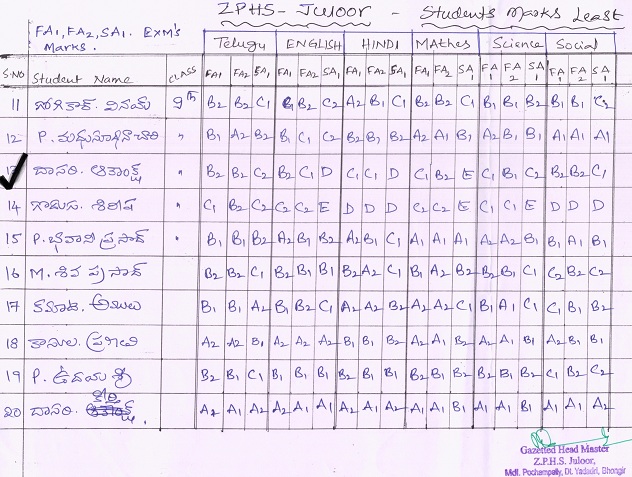 ZPHS - Juloor - Students Marks Least
FA1, FA2, SA1. EXM's
Marks.
Telugu ENGLISH HINDI MAthes Science Social
S.NO Student Name CLASS FA1 FA2 SA1 FA1 FA2 SA1 FA1 FA2 SA1 FA1 FA2 SA1 FA1 FA2 SA1 FA1 FA2 SA1
11 వినయ్ 9th B2 B2 C1 B2 C2 A2 B1 C1 B2 B2 C1 B1 B1 B2 B1 B1 C2
12 P. " B1 A2 B2 B1 C1 C2 B2 B1 B2 B2 A1 B1 A2 B1 B1 A1 A1 A1
13 దాసరి. " B2 B2 C2 B2 C1 D C1 C1 D C1 B2 E C1 B1 C2 B2 B2 C1
14 శిరీష " C1 B2 C2 C2 C2 E D D D C2 C2 E C1 C1 E D D D
15 P. భవాని ప్రసాద్ " B1 B1 B2 A2 B1 B2 A2 B1 C1 A1 A1 A1 A2 A2 B1 B1 A1 B1
16 M. శివ ప్రసాద్ B2 B2 C1 B2 B1 B1 B2 A2 C1 B1 A2 B2 B2 B1 C1 C2 B2 C2
17 B1 B1 A2 B1 B2 C1 A2 A2 B2 A2 A2 C1 B1 A1 C1 C1 B2 B2
18 A2 A2 B1 A2 A2 A2 B1 B1 B2 A2 A1 B2 A2 A1 B1 A2 B1 B1
19 P. ఉదయ శ్రీ B2 B1 C1 B1 B1 B1 B2 B1 B1 B2 B1 B2 B2 B1 B2 C1 B2 C2
20 దాసరి. A2 A1 A2 A2 A1 A1 A2 A1 A2 A1 A1 B1 A1 A1 B2 A1 A1 A2
Gazetted Head Master
Z.P.H.S. Juloor,
Mdl. Pochampally, Dt. Yadadri, Bhongir